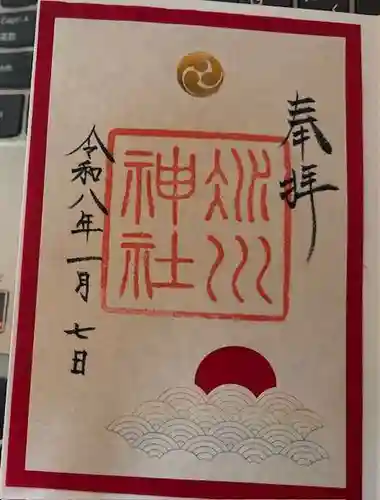 奉拝
冰川
神社
令和八年一月七日